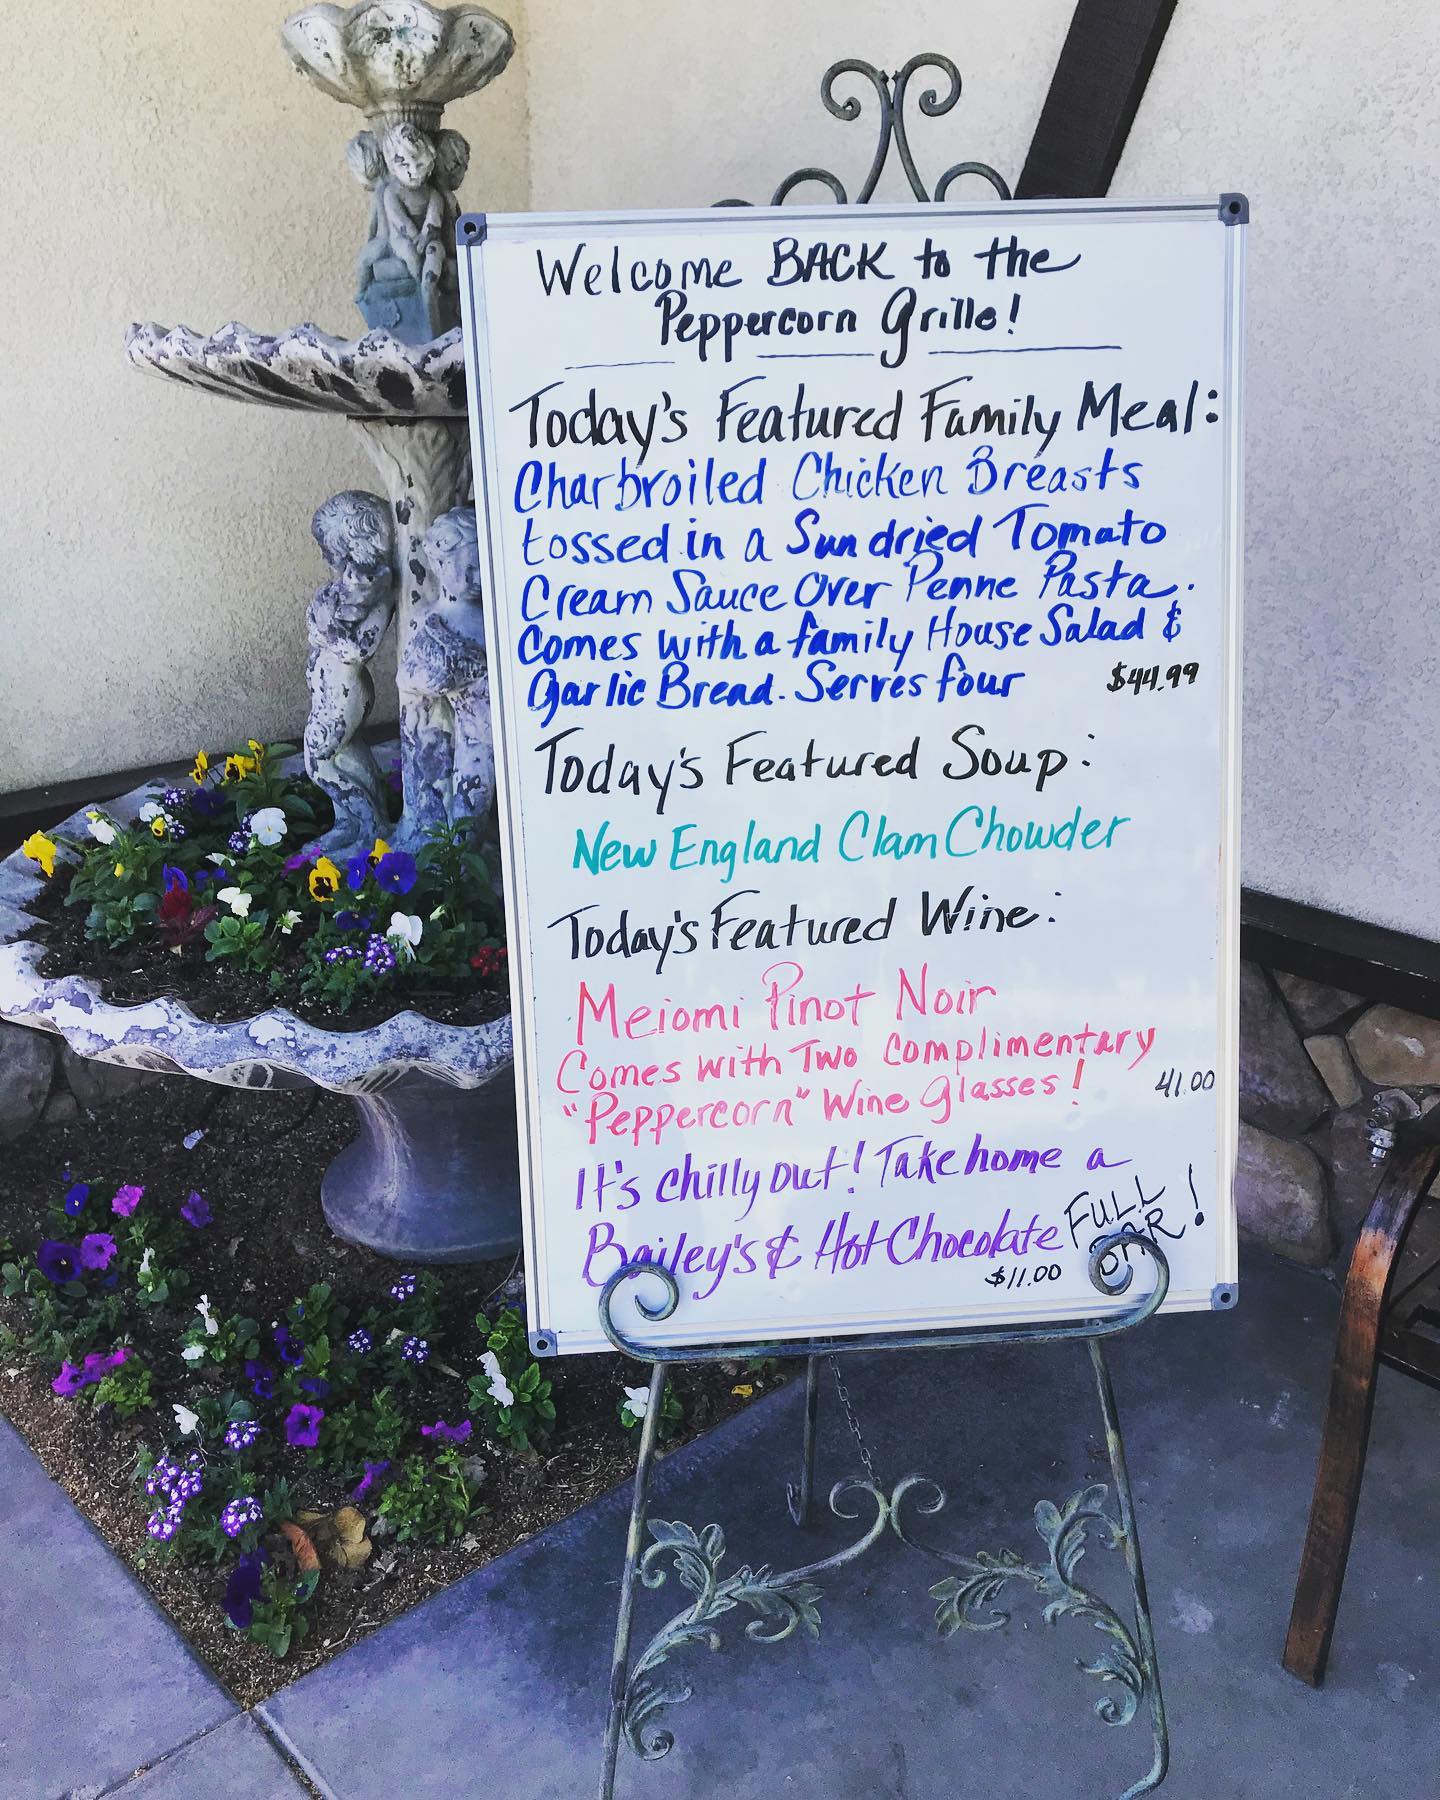 Welcome BACK to the
Peppercorn Grille!
Today's Featured Family Meal:
Charbroiled Chicken Breasts
tossed in a Sun dried Tomato
Cream Sauce Over Penne Pasta.
Comes with a family House Salad &
Garlic Bread. Serves four $44.99
Today's Featured Soup:
New England Clam Chowder
Today's Featured Wine:
Meiomi Pinot Noir
Comes with Two Complimentary
"Peppercorn" Wine Glasses! 41.00
It's chilly out! Take home a
Bailey's & Hot Chocolate
$11.00
FULL
BAR!